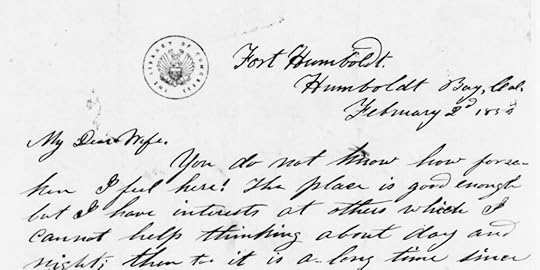 THE LIBRARY OF CONGRESS
Fort Humboldt.
Humboldt Bay, Cal.
February 2d 1854
My Dear Wife.
You do not know how forsa-
ken I feel here! The place is good enough
but I have interests at others which I
cannot help thinking about day and
night; then to it is a long time since